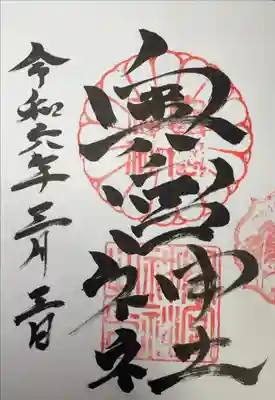 奥澤神社
令和六年三月三日